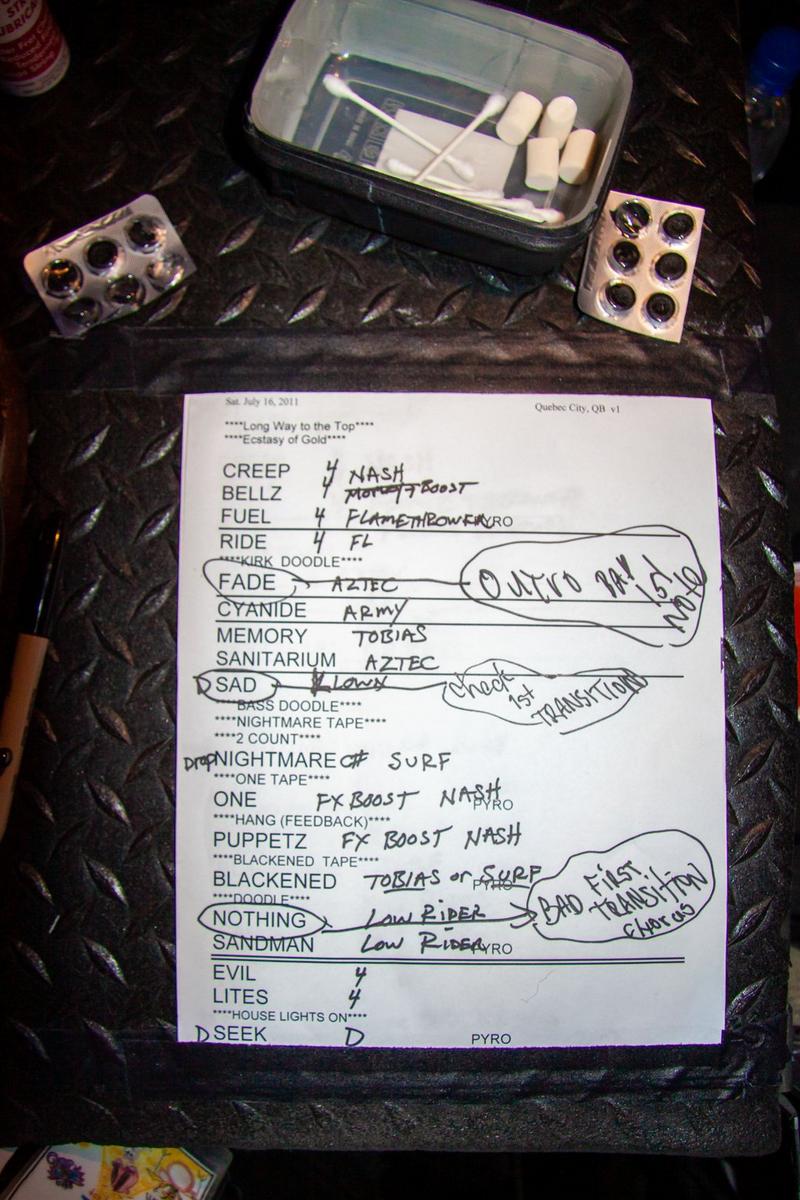 Sat. July 16, 2011
Quebec City, QB v1
****Long Way to the Top****
****Ecstasy of Gold****
CREEP 4 NASH
BELLZ 4 BOOST
FUEL 4 FLAMETHROWER PYRO
RIDE 4 FL
****KIRK DOODLE****
FADE AZTEC OUTRO BAY 1st NOTE
CYANIDE ARMY
MEMORY TOBIAS
SANITARIUM AZTEC
D SAD check 1st TRANSITION
****BASS DOODLE****
****NIGHTMARE TAPE****
****2 COUNT****
Drop NIGHTMARE C# SURF
****ONE TAPE****
ONE FX BOOST NASH PYRO
****HANG (FEEDBACK)****
PUPPETZ FX BOOST NASH
****BLACKENED TAPE****
BLACKENED TOBIAS or SURF PYRO
****DOODLE****
NOTHING LOW RIDER BAD FIRST TRANSITION chorus
SANDMAN LOW RIDER PYRO
EVIL 4
LITES 4
****HOUSE LIGHTS ON****
D SEEK D PYRO